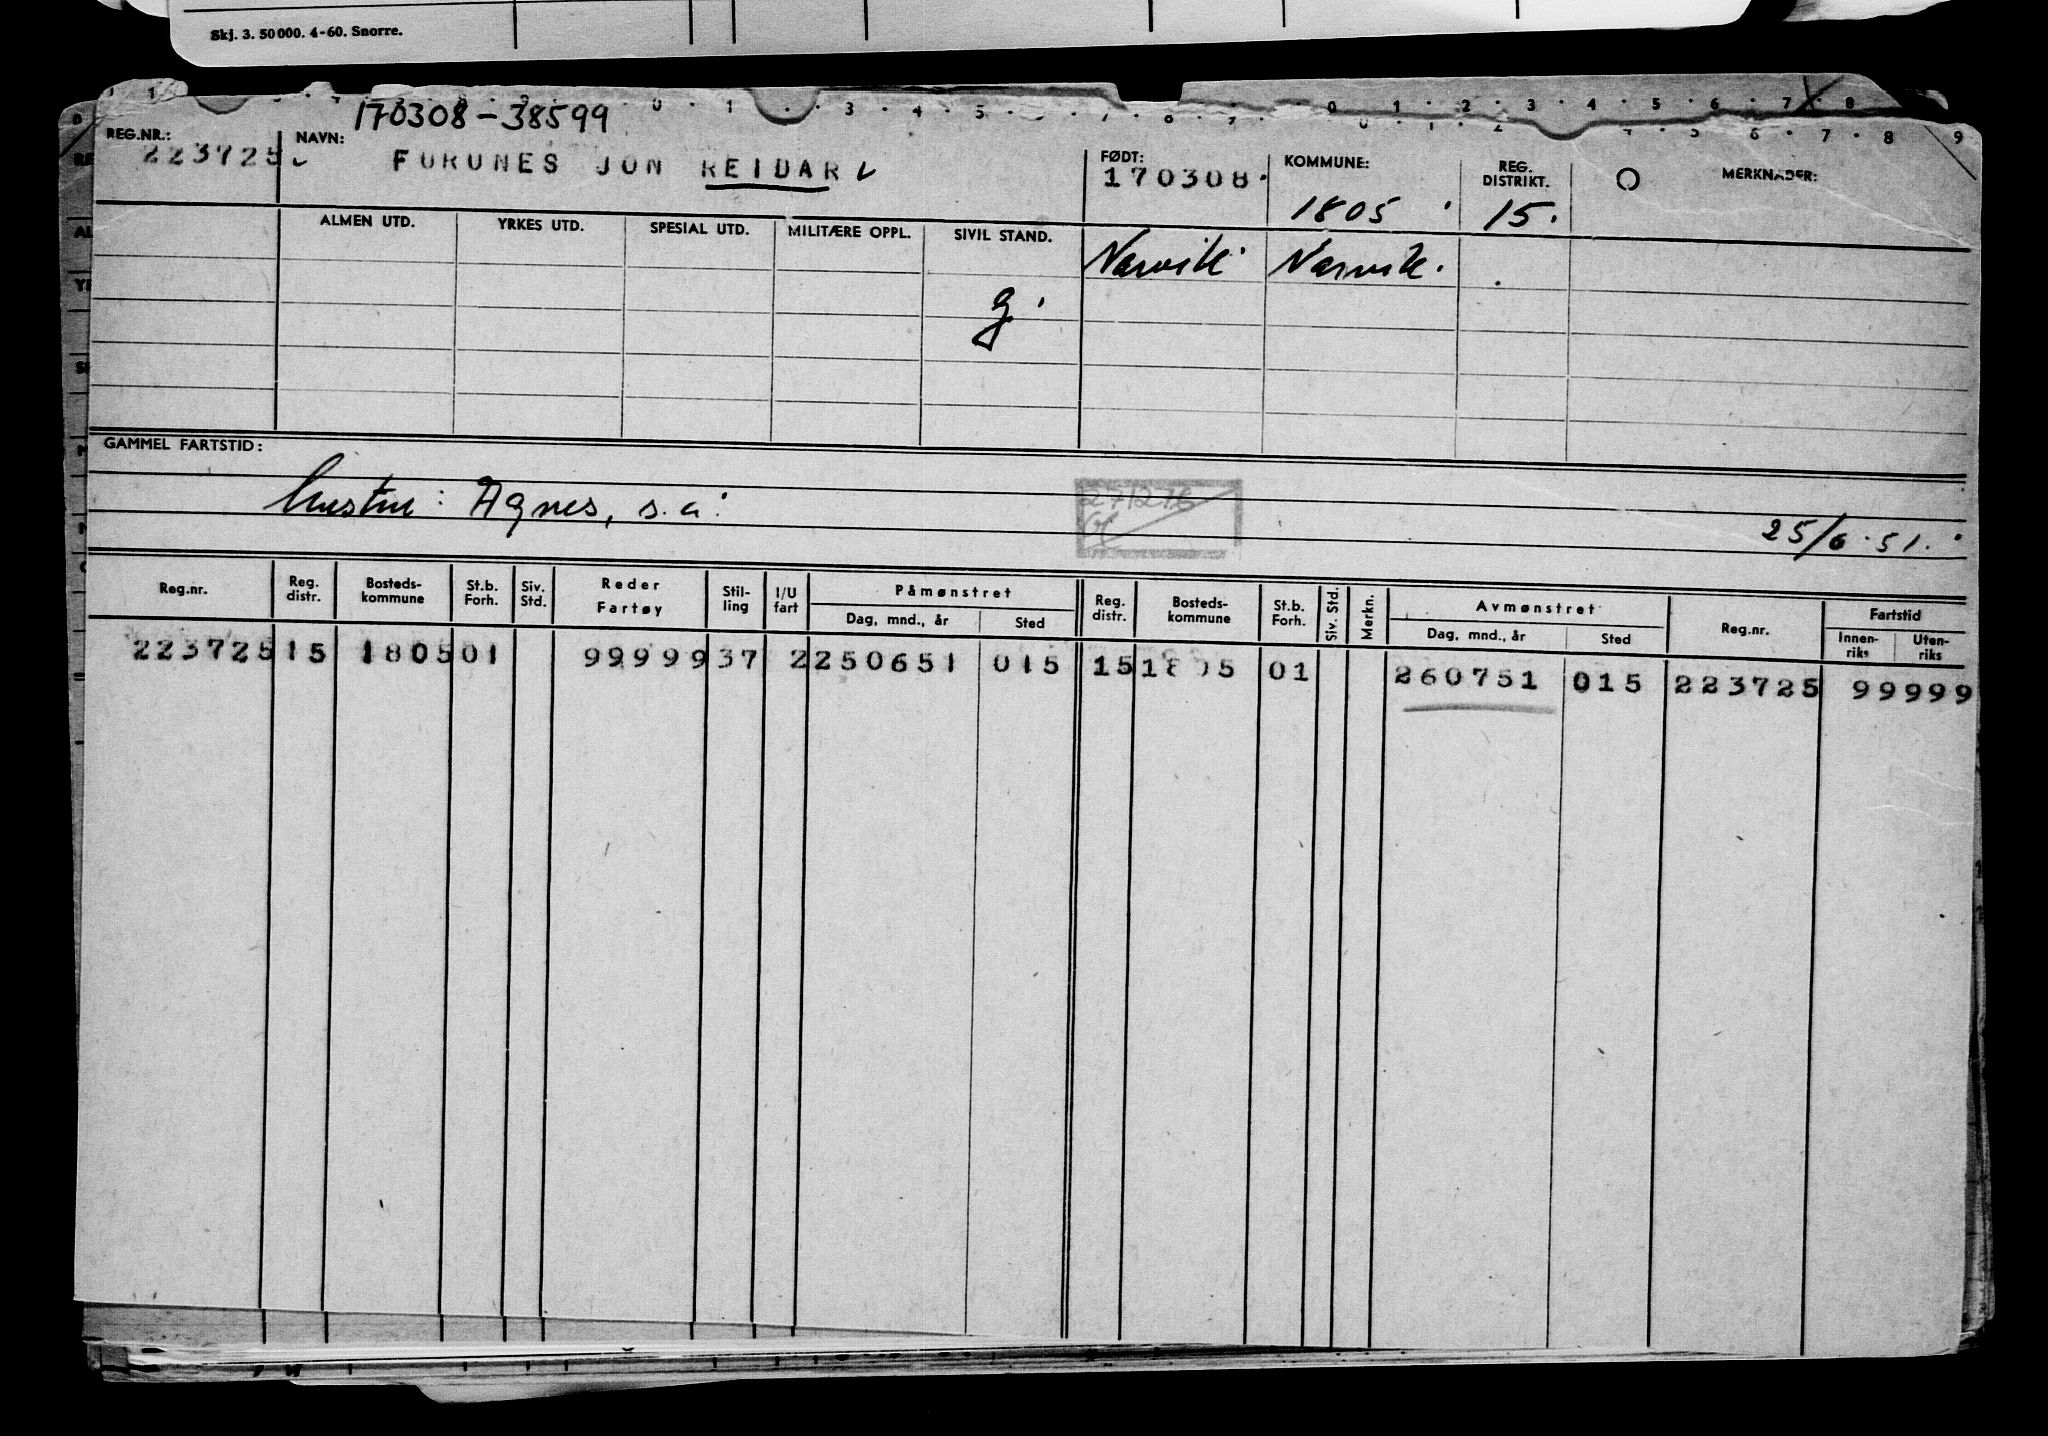 Skj. 3. 50 000. 4-60. Snorre.
170308-38599
REG.NR.: NAVN: FØDT: KOMMUNE: REG. DISTRIKT. MERKNADER:
223725 FURUNES JON REIDAR 170308 1805 15.
ALMEN UTD. YRKES UTD. SPESIAL UTD. MILITÆRE OPPL. SIVIL STAND. Narvik Narvik.
g
GAMMEL FARTSTID:
hustru: Agnes, s.a.
25/6.51.
Reg.nr. Reg. distr. Bosteds-kommune St.b. Forh. Siv. Std. Reder Fartøy Stil-ling I/U fart Påmønstret Dag, mnd., år Sted Reg. distr. Bosteds-kommune St.b. Forh. Siv. Std. Merkn. Avmønstret Dag, mnd., år Sted Reg.nr. Fartstid Innen-riks Uten-riks
223725 15 1805 01 99999 37 2 250651 015 15 1805 01 260751 015 223725 99999